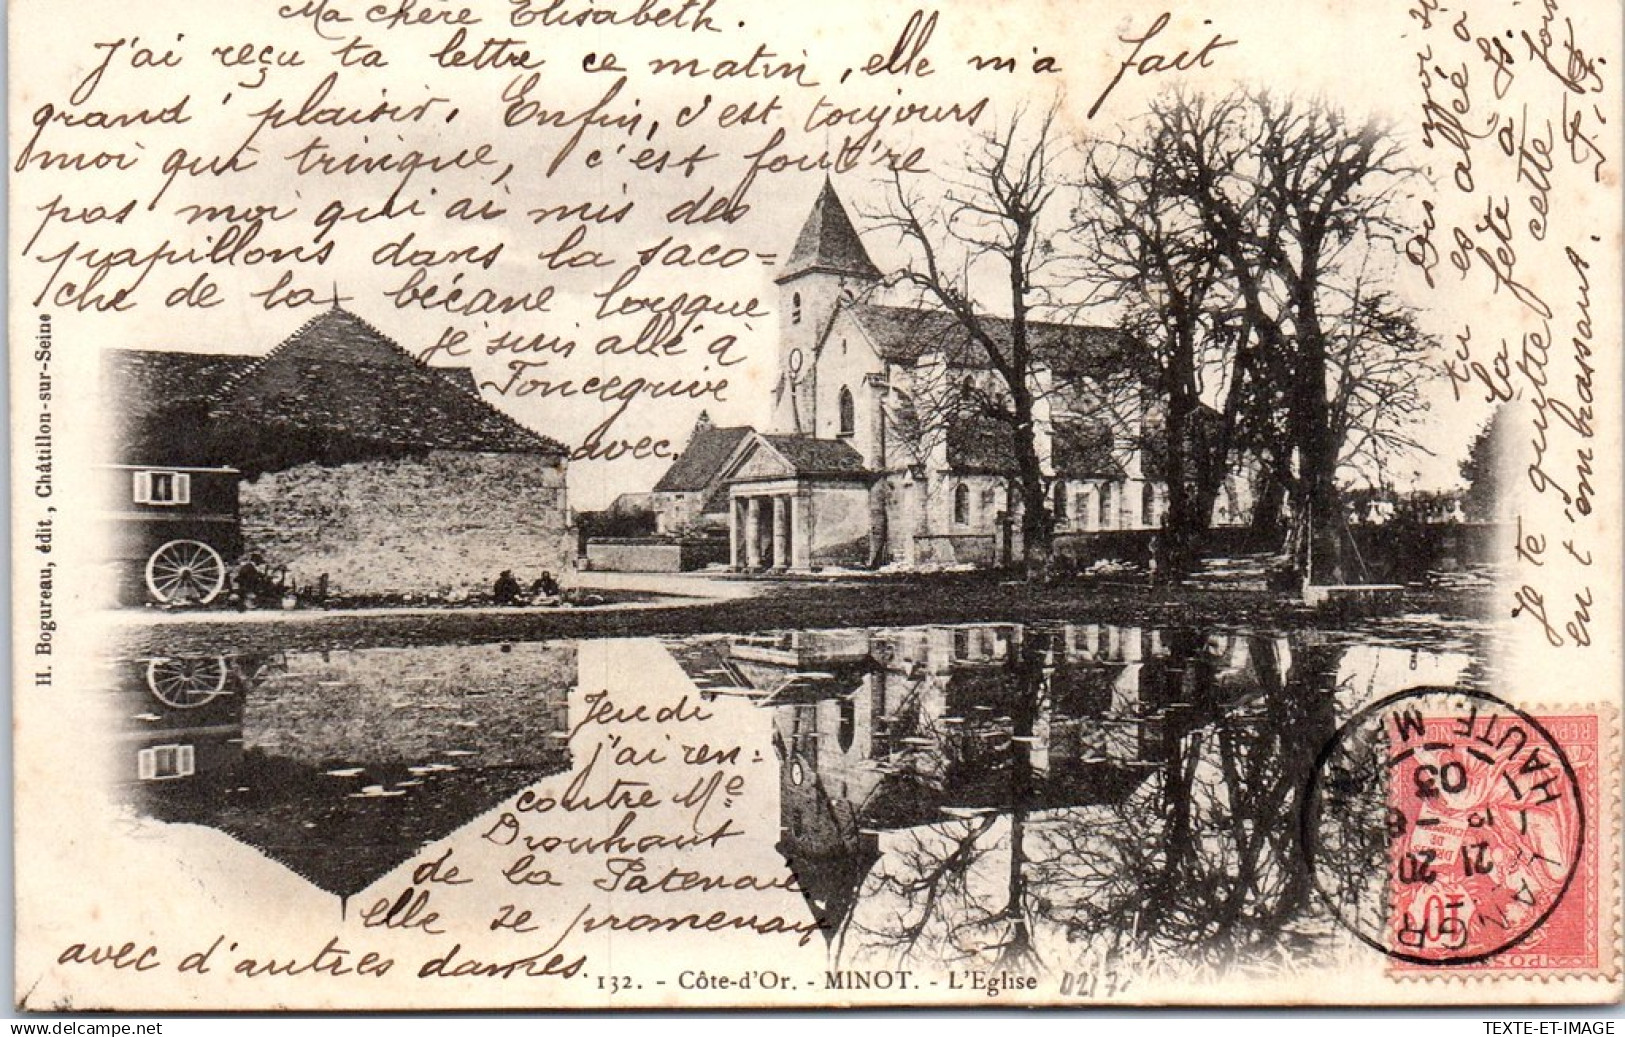 Ma chère Elisabeth.
J'ai reçu ta lettre ce matin, elle m'a fait
grand plaisir. Enfin, c'est toujours
moi qui trinque, c'est fout're
pas moi qui ai mis des
papillons dans la saco-
che de la bécane lorsque
je suis allé à
Foncegrive
avec.
Jeudi
j'ai ren=
contre Me
Drouhaut
de la
elle se promenait
avec d'autres dames.
Dis-moi si
tu es allée à
la fête à Is.
Je te quitte cette fois
en t'embrassant.
H. Bogureau, édit., Châtillon-sur-Seine
132. - Côte-d'Or. - MINOT. - L'Eglise
LANGRES
HTE MARNE
20
21
03
10
POSTES
delcampe.net
TEXTE-ET-IMAGE